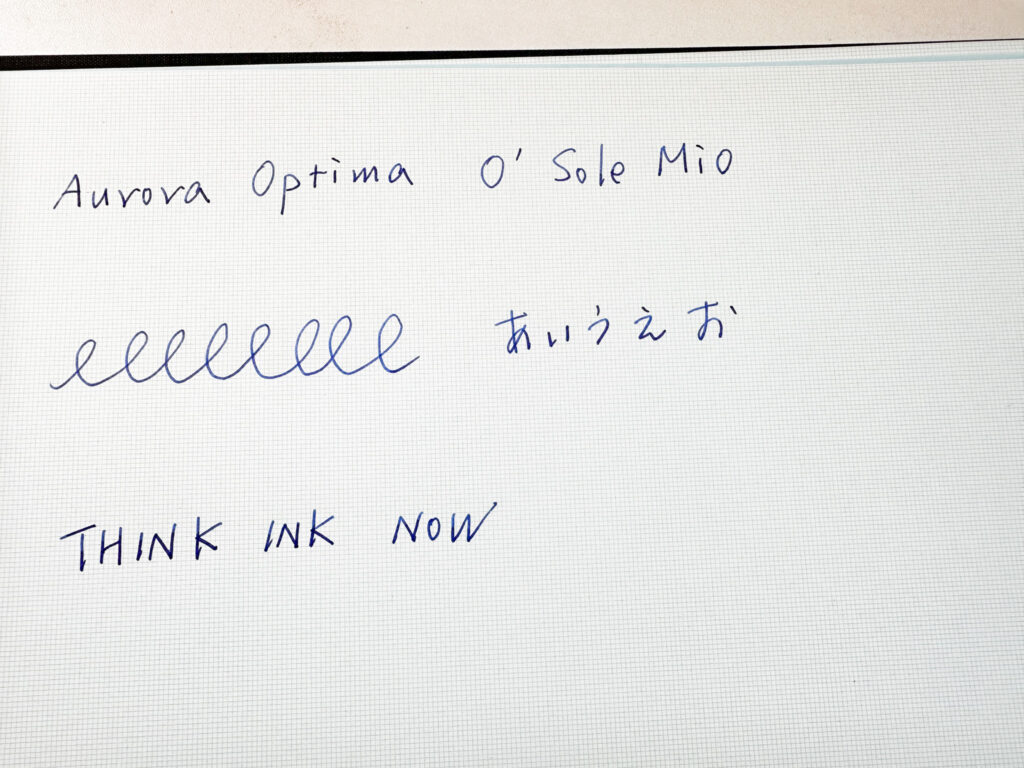 Aurora Optima O' Sole Mio
eeeeeeee あいうえお
THINK INK NOW